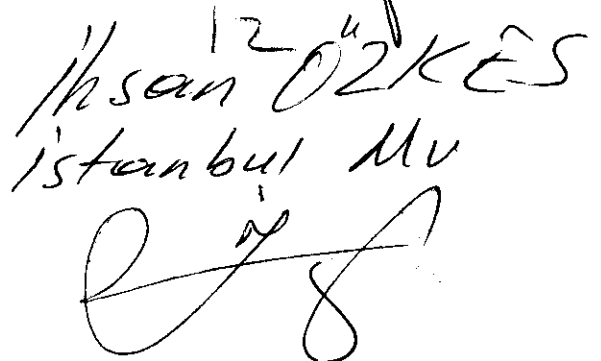 12
İhsan ÖZKES
istanbul Mv